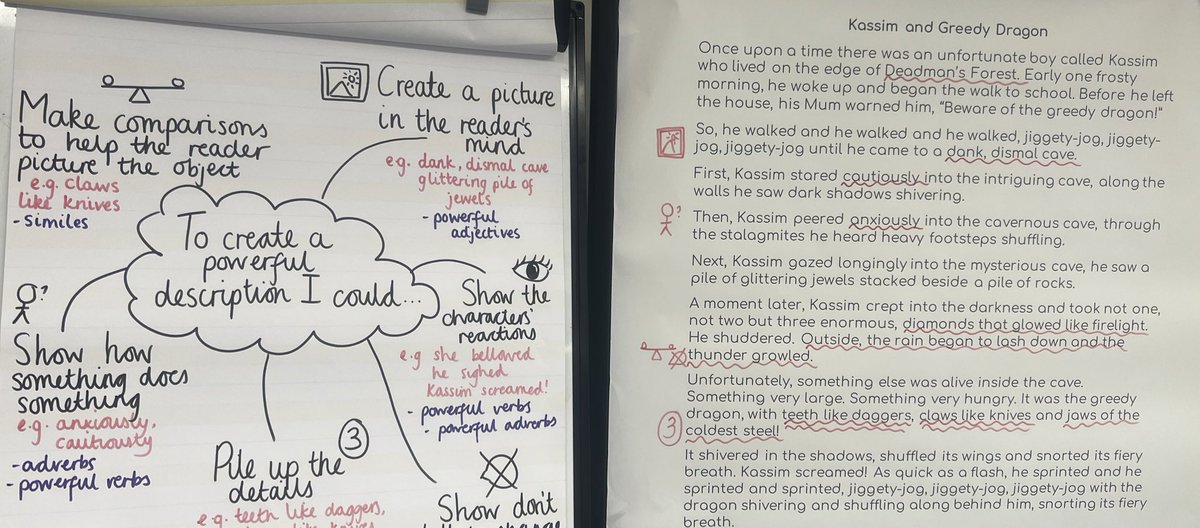 Make comparisons
to help the reader
picture the object
e.g. claws
like knives
- similes
Create a picture
in the reader's
mind
e.g. dank, dismal cave
glittering pile of
jewels
- powerful
adjectives
To create a
powerful
description I could...
Show the
characters'
reactions
e.g she bellowed
he sighed
Kassim screamed!
- powerful verbs
- powerful adverbs
?
Show how
something does
something
e.g. anxiously,
cautiously
- adverbs
- powerful verbs
3
Pile up the
details
e.g. teeth like daggers,
like knives
Show don't
Kassim and Greedy Dragon
Once upon a time there was an unfortunate boy called Kassim
who lived on the edge of Deadman's Forest. Early one frosty
morning, he woke up and began the walk to school. Before he left
the house, his Mum warned him, "Beware of the greedy dragon!"
So, he walked and he walked and he walked, jiggety-jog, jiggety-
jog, jiggety-jog until he came to a dank, dismal cave.
First, Kassim stared cautiously into the intriguing cave, along the
walls he saw dark shadows shivering.
?
Then, Kassim peered anxiously into the cavernous cave, through
the stalagmites he heard heavy footsteps shuffling.
Next, Kassim gazed longingly into the mysterious cave, he saw a
pile of glittering jewels stacked beside a pile of rocks.
A moment later, Kassim crept into the darkness and took not one,
not two but three enormous, diamonds that glowed like firelight.
He shuddered. Outside, the rain began to lash down and the
thunder growled.
Unfortunately, something else was alive inside the cave.
Something very large. Something very hungry. It was the greedy
dragon, with teeth like daggers, claws like knives and jaws of the
3
coldest steel!
It shivered in the shadows, shuffled its wings and snorted its fiery
breath. Kassim screamed! As quick as a flash, he sprinted and he
sprinted and sprinted, jiggety-jog, jiggety-jog, jiggety-jog with the
dragon shivering and shuffling along behind him, snorting its fiery
breath.